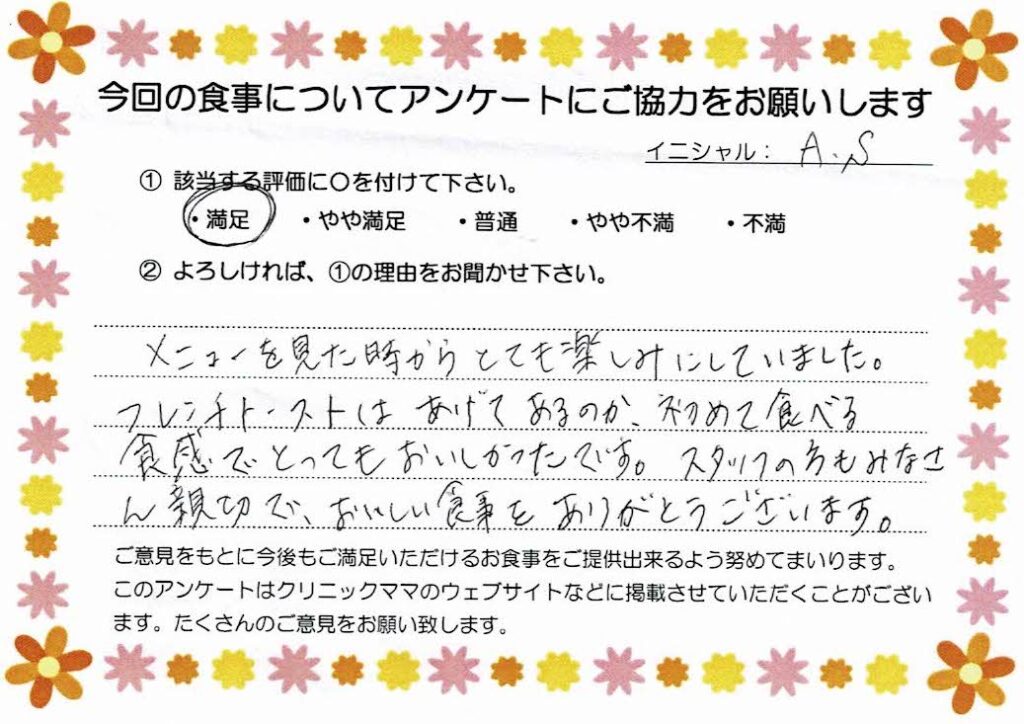 今回の食事についてアンケートにご協力をお願いします
イニシャル： A.S
① 該当する評価に〇を付けて下さい。
・満足 ・やや満足 ・普通 ・やや不満 ・不満
② よろしければ、①の理由をお聞かせ下さい。
メニューを見た時からとても楽しみにしていました。
フレンチトーストは あげて あるのか、初めて食べる
食感でとってもおいしかったです。スタッフの方もみなさ
ん親切で、おいしい食事を ありがとうございます。
ご意見をもとに今後もご満足いただけるお食事をご提供出来るよう努めてまいります。
このアンケートはクリニックママのウェブサイトなどに掲載させていただくことがござい
ます。たくさんのご意見をお願い致します。